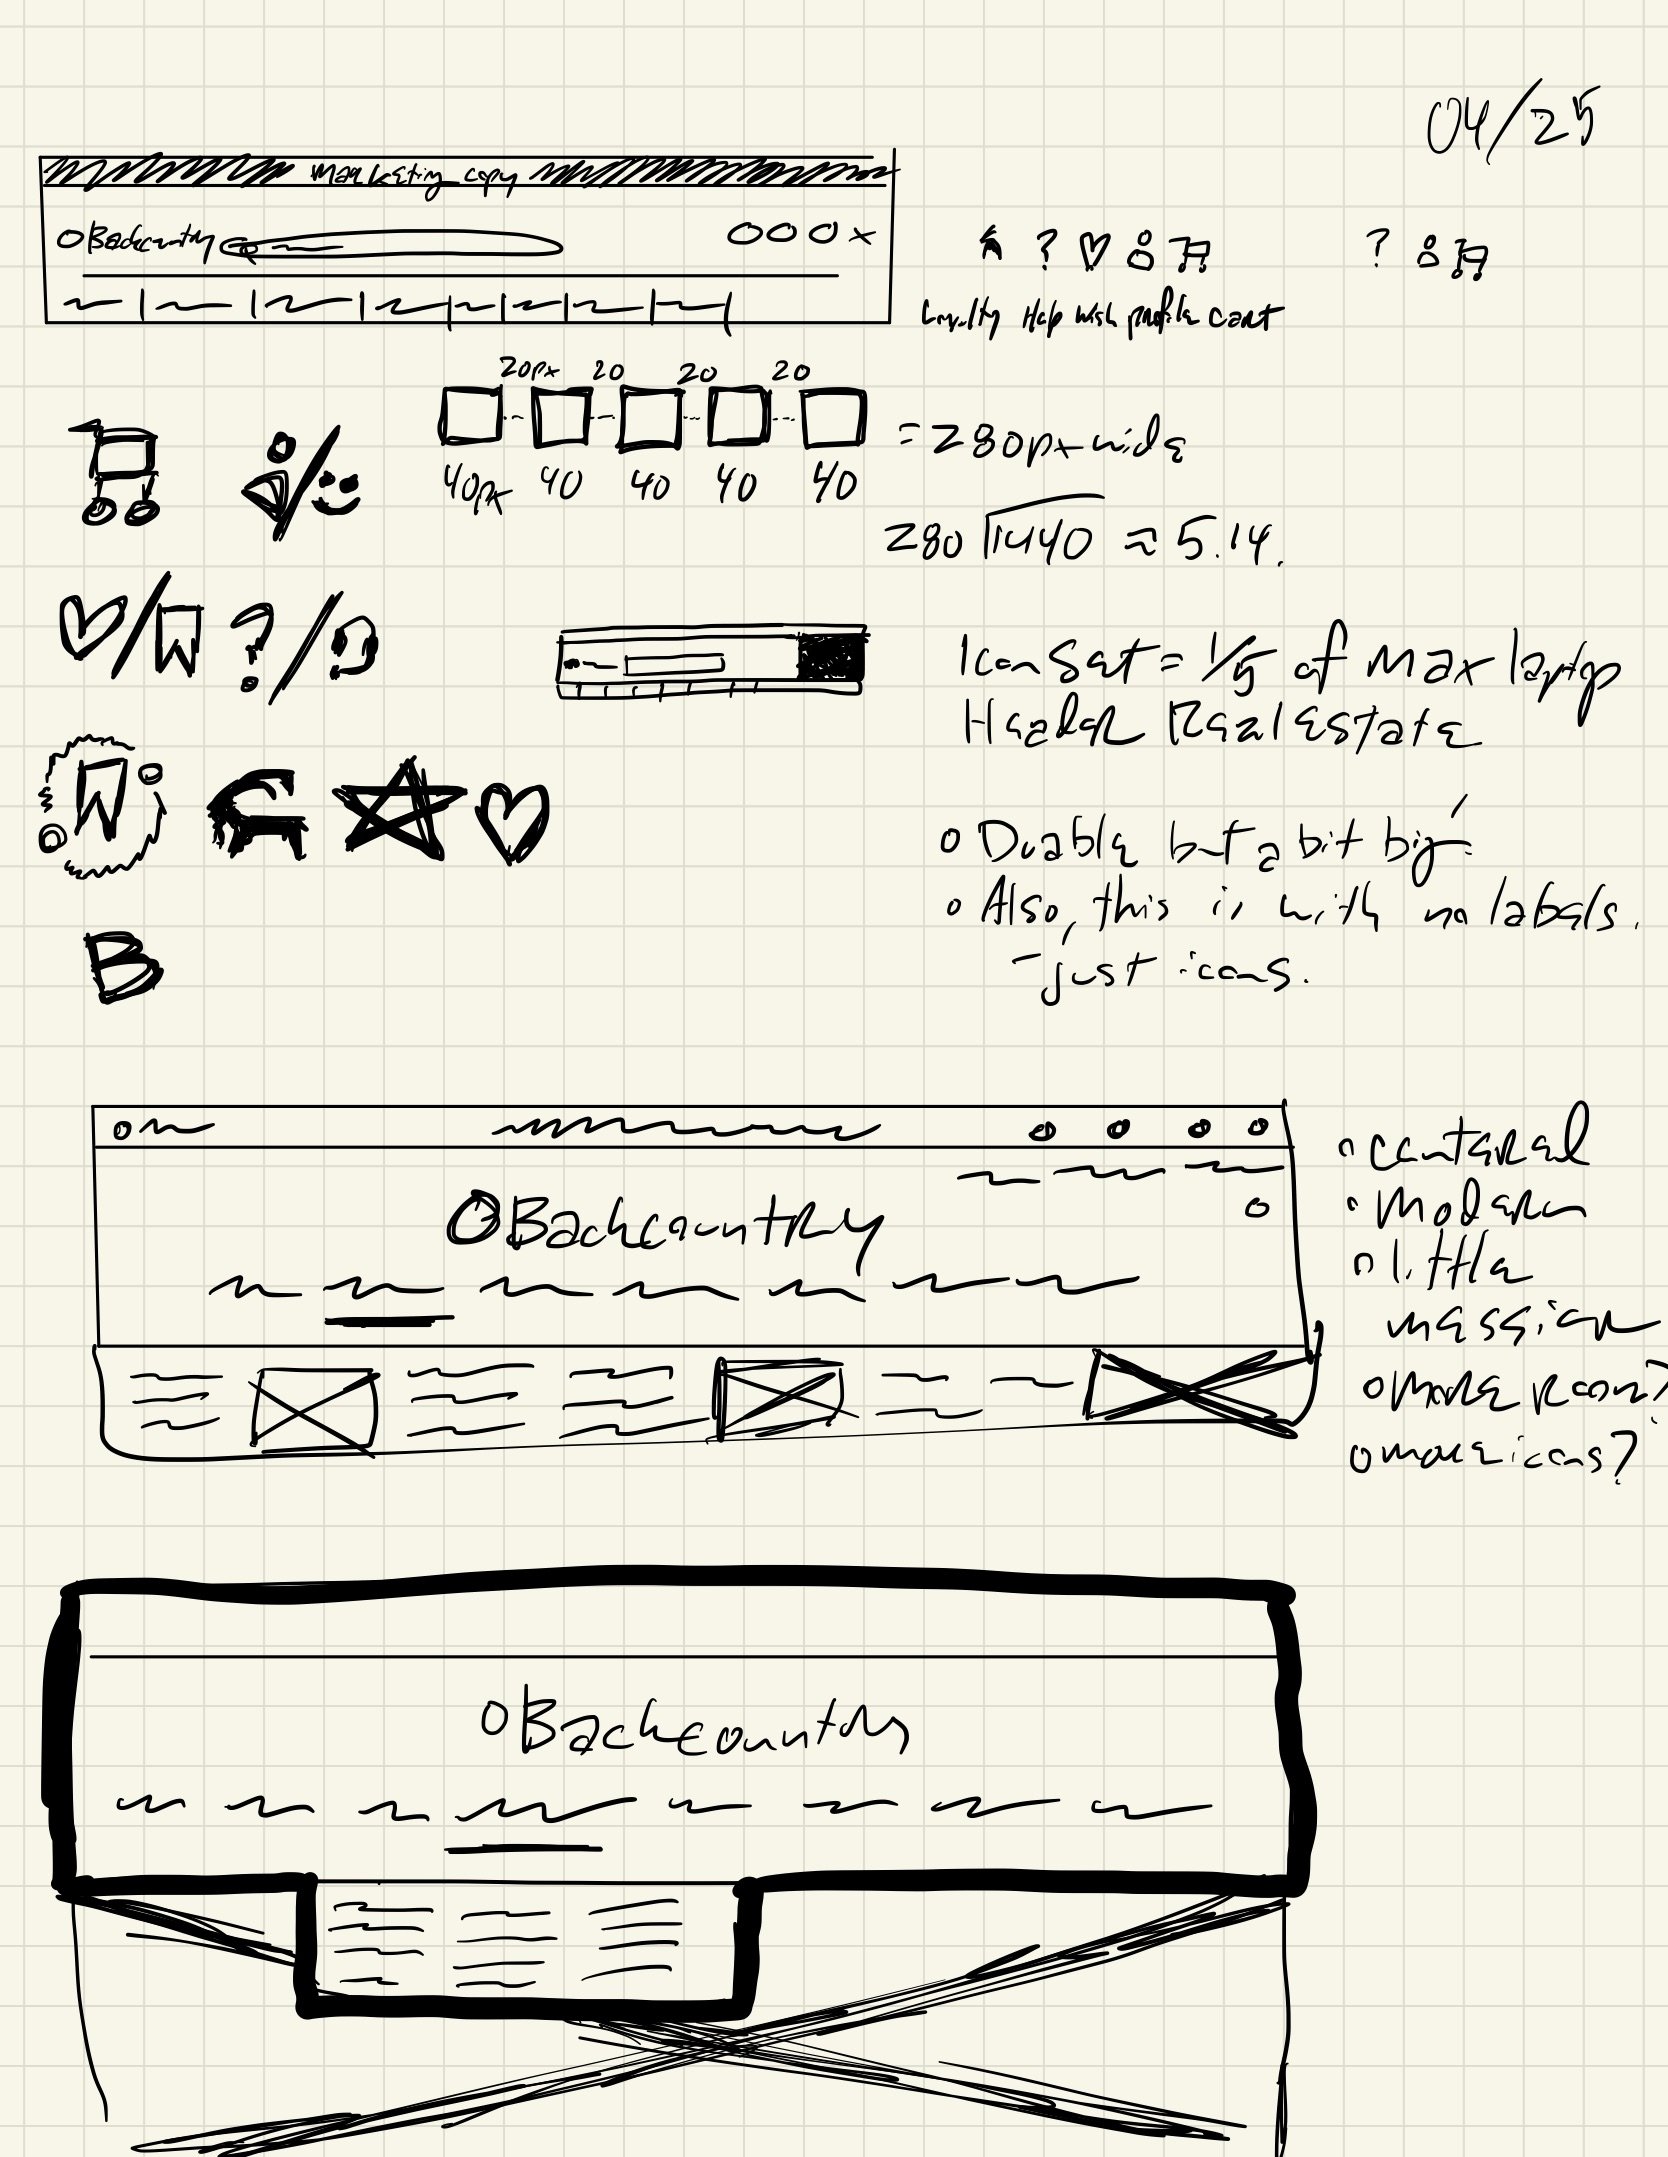 04/25
Marketing copy
Backcountry
? ?
Loyalty Help Wish profile cart
20px 20 20 20
= 280px wide
40px 40 40 40 40
280 1440 ≈ 5.14.
? 
Icon Set = 1/5 of Max laptop
Header Real estate
Doable but a bit big
Also, this is with no labels.
- just icons.
B
centered
Backcountry
Modern
little
messier
More room?
more icons?
Backcountry